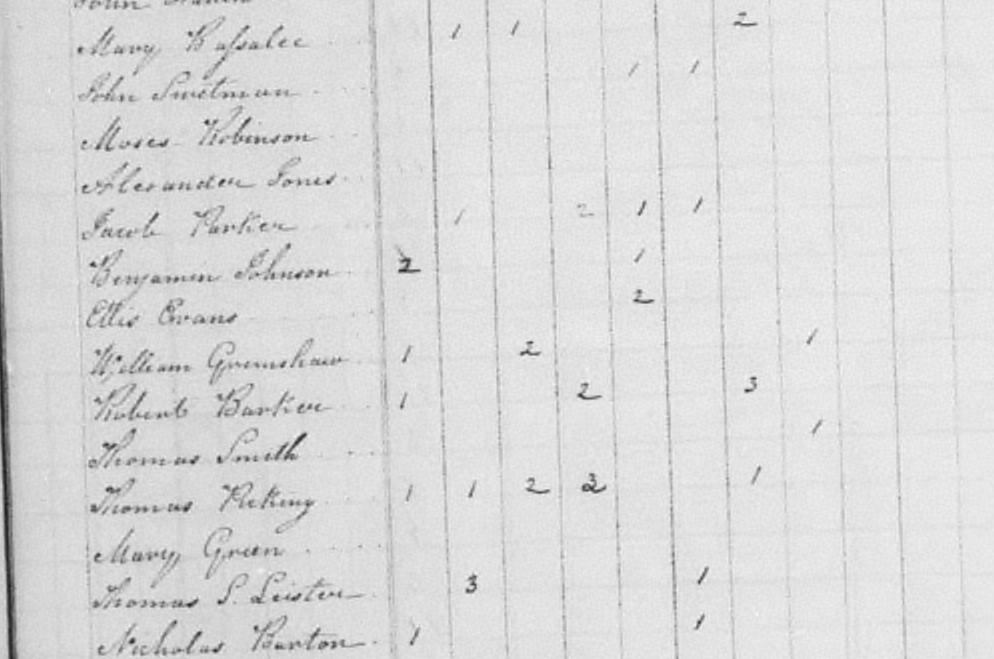 Mary Bassalee 1 1 2
John Swetman 1 1
Moses Robinson
Alexander Jones
Jacob Parker 1 2 1 1
Benjamin Johnson 2 1
Ellis Evans 2
William Grimshaw 1 2 1
Robert Barker 1 2 3
Thomas Smith 1
Thomas Peking 1 1 2 3 1
Mary Green
Thomas S. Leister 3 1
Nicholas Barton 1 1